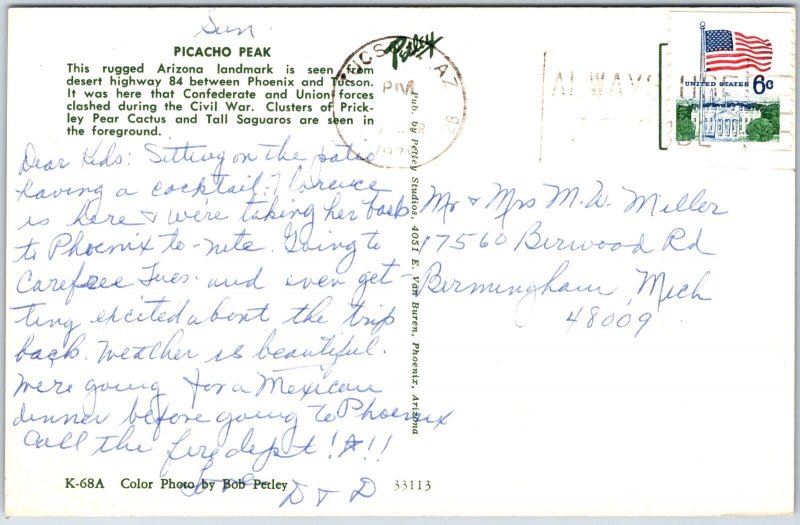 Sun.
PICACHO PEAK
This rugged Arizona landmark is seen from
desert highway 84 between Phoenix and Tucson.
It was here that Confederate and Union forces
clashed during the Civil War. Clusters of Prick-
ley Pear Cactus and Tall Saguaros are seen in
the foreground.
Dear Kids: Sitting on the patio
having a cocktail. Florence
is here & we're taking her back
to Phoenix to-nite. Going to
Carefree Tues. and even get-
ting excited about the trip
back. Weather is beautiful.
We're going for a Mexican
dinner before going to Phoenix
Call the fire dept!!!
Love
D + D
K-68A Color Photo by Bob Petley
33113
Petley
Pub. by Petley Studios, 4051 E. Van Buren, Phoenix, Arizona
AZ
PM
ALWAYS USE
UNITED STATES 6c
Mr & Mrs M.W. Miller
17560 Berwood Rd
Bermingham, Mich
48009